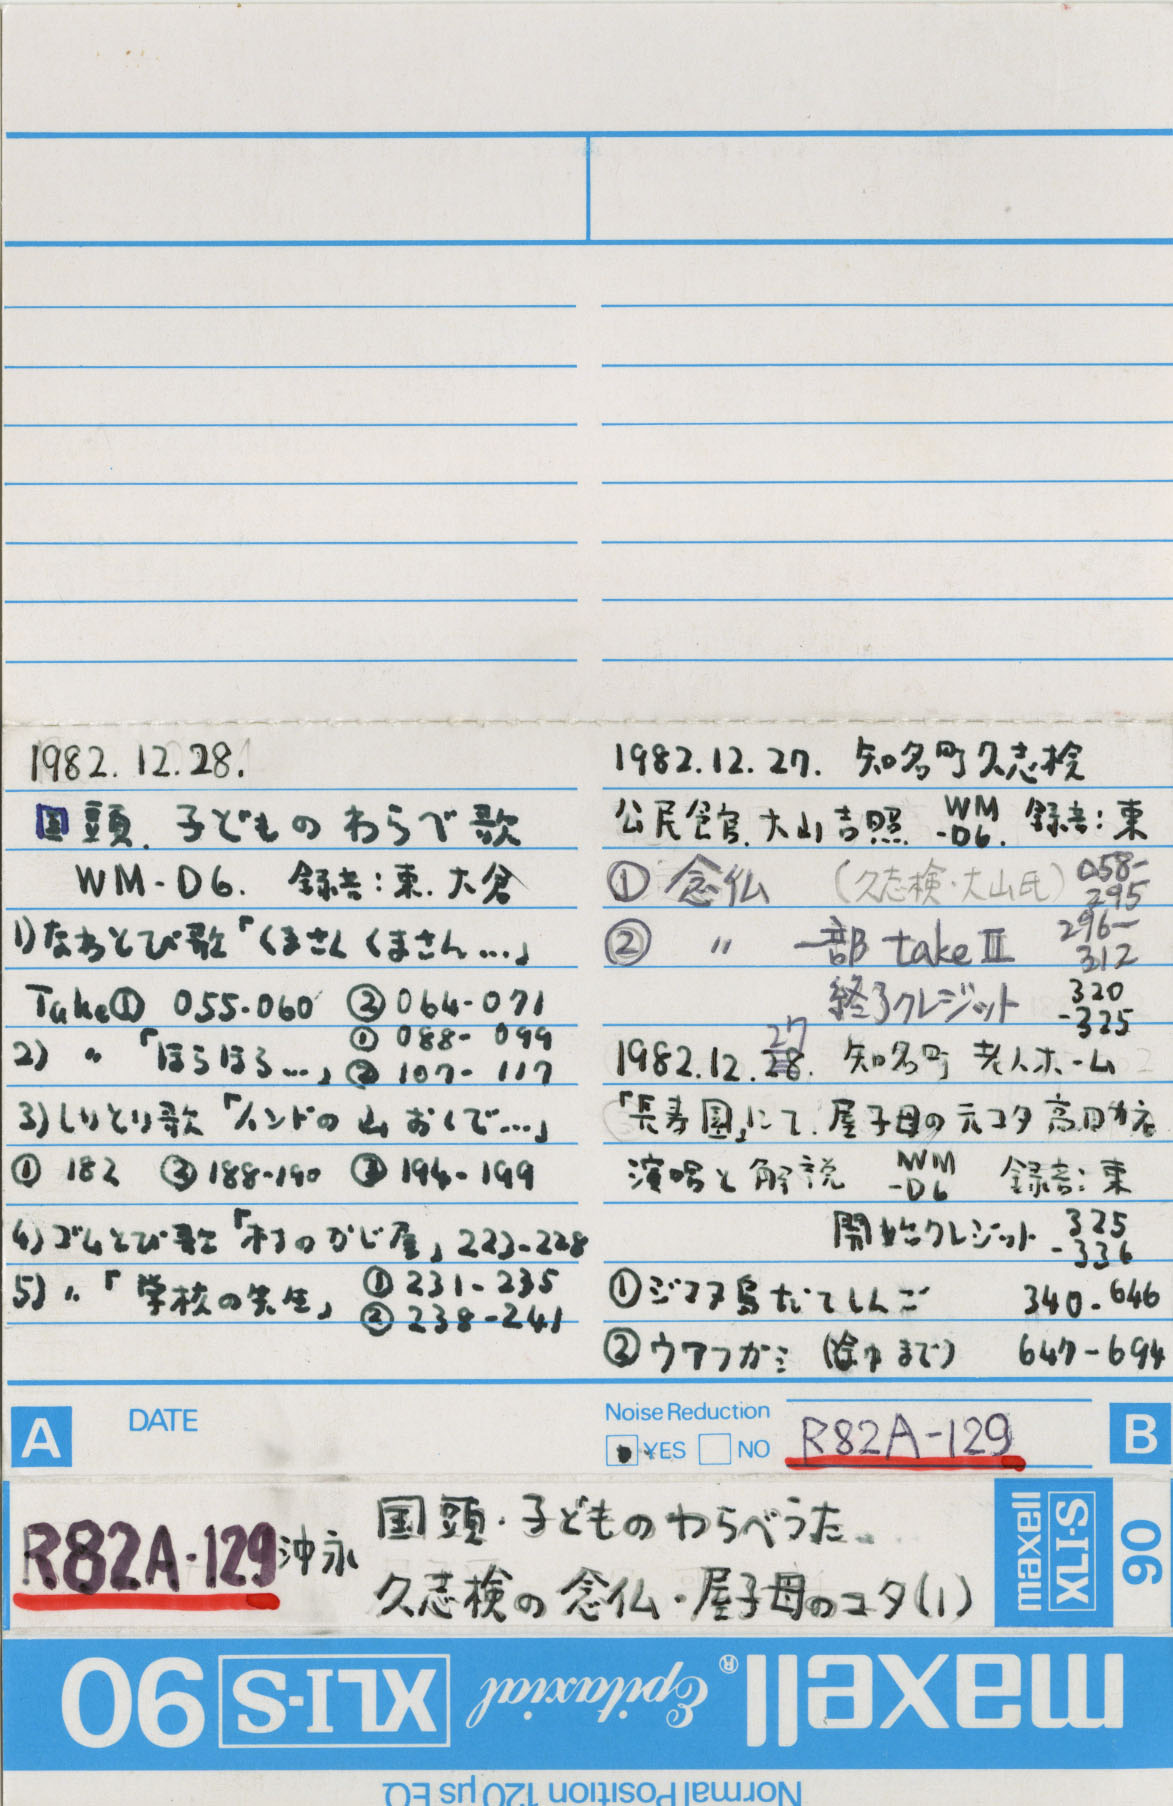 1982.12.28.
国頭. 子どものわらべ歌
WM-D6. 録音:東.大倉
1)なわとび歌「くまさんくまさん…」
Take① 055-060 ②064-071
2) 〃 「ほらほら…」 ① 088-099
② 107-117
3)しりとり歌「インドの山おくで…」
① 182 ② 188-190 ③ 194-199
4)ゴムとび歌「村のかじ屋」223-228
5) 〃 「学校の先生」 ① 231-235
② 238-241
1982.12.27. 知名町久志検
公民館. 大山吉照. WM-D6. 録音:東
① 念仏 (久志検・大山氏) 058-295
② 〃 一部 take II 296-312
終了クレジット 320-325
1982.12.27 知名町 老人ホーム
「長寿園」にて. 屋子母の元コタ 高田
演唱と解説 WM-D6 録音:東
開始クレジット 325-336
①ジマヌ島だてしんご 340-646
②ウアフガミ (途中まで) 647-694
A DATE
Noise Reduction
YES NO
R82A-129
B
R82A-129 沖永
国頭・子どものわらべうた
久志検の念仏・屋子母のコタ(1)
maxell XLI-S 90
maxell Epitaxial XLI-S 90
Normal Position 120μs EQ